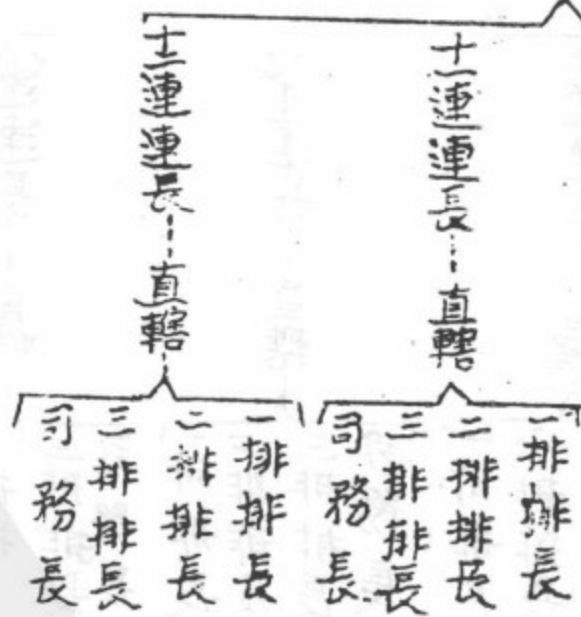 十一連連長……直轄
一排排長
二排排長
三排排長
司務長
十二連連長……直轄
一排排長
二排排長
三排排長
司務長